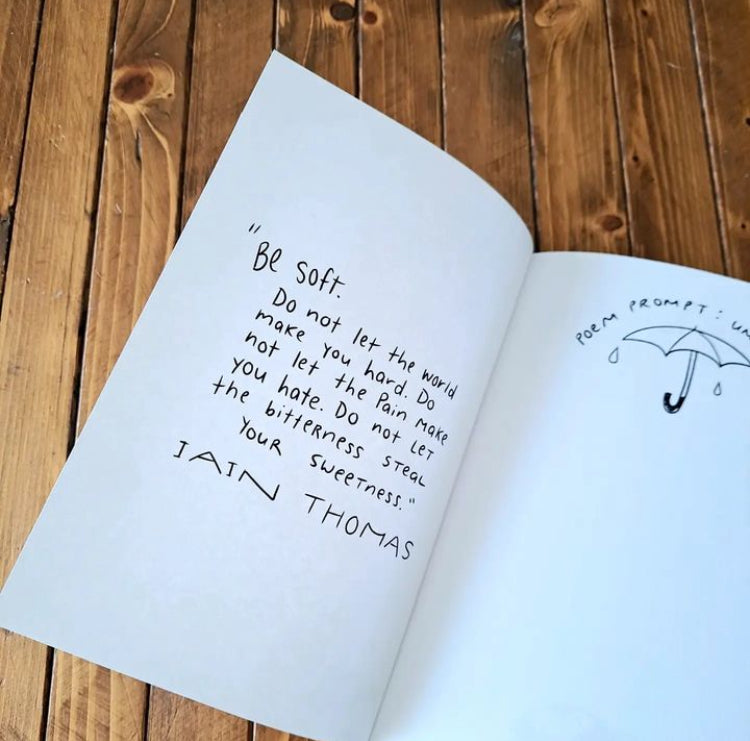 "
Be soft.
Do not let the world
make you hard. Do
not let the Pain make
you hate. Do not LeT
the bitteRness steaL
YouR sweeTness."
IAIN THOMAS
POEM PROMPT: